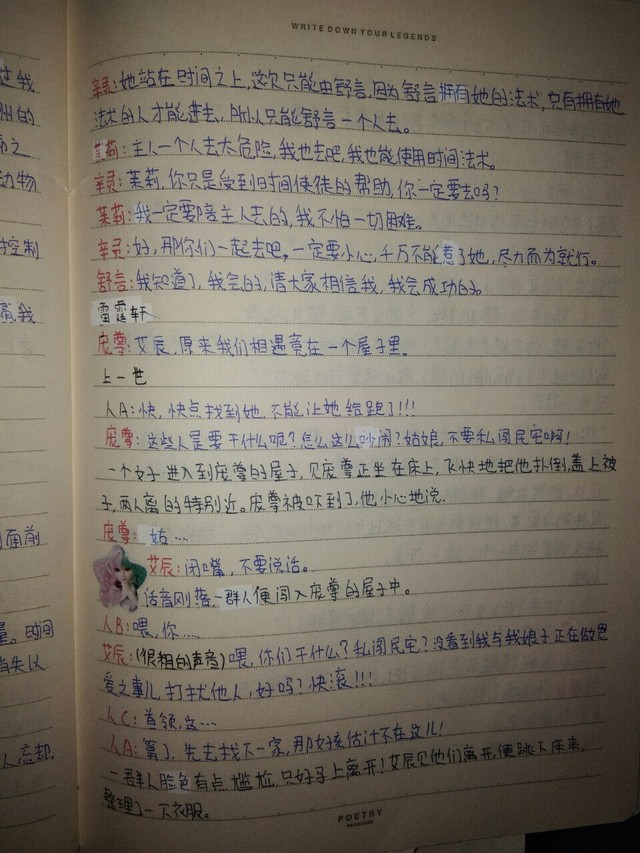 WRITE DOWN YOUR LEGENDS
辛灵:她站在时间之上,这次只能由舒言,因为舒言拥有她的法术,只有拥有她
法术的人才能进去,所以只能舒言一个人去。
茉莉:主人一个人去太危险,我也去吧,我也能使用时间法术。
辛灵:茉莉,你只是受到旧时间使徒的帮助,你一定要去吗?
茉莉:我一定要陪主人去的,我不怕一切困难。
辛灵:好,那你们一起去吧,一定要小心,千万不能惹了她,尽力而为就行。
舒言:我知道了,我会的,请大家相信我,我会成功的。
雷霆轩
庞尊:艾辰,原来我们相遇竟在一个屋子里。
上一世
人A:快,快点找到她,不能让她给跑了!!!
庞尊:这些人是要干什么呢?怎么这么吵闹?姑娘,不要私闯民宅啊!
一个女子进入到庞尊的屋子,见庞尊正坐在床上,飞快地把他扑倒,盖上被
子,两人离的特别近。庞尊被吓到了,他小心地说.
庞尊:姑...
艾辰:闭嘴,不要说话。
话音刚落,一群人便闯入庞尊的屋子中。
人B:喂,你....
艾辰:(很粗的声音)喂,你们干什么?私闯民宅?没看到我与我娘子正在做恩
爱之事儿,打扰他人,好吗?快滚!!!
人C:首领,这...
人A:算了,先去找下一家,那女孩估计不在这儿!
一群人脸色有点尴尬,只好马上离开!艾辰见他们离开,便跳下床来,
整理了一下衣服。
POETRY
过我
州的
动物
控制
面前
量。时间
当失以
人忘却,